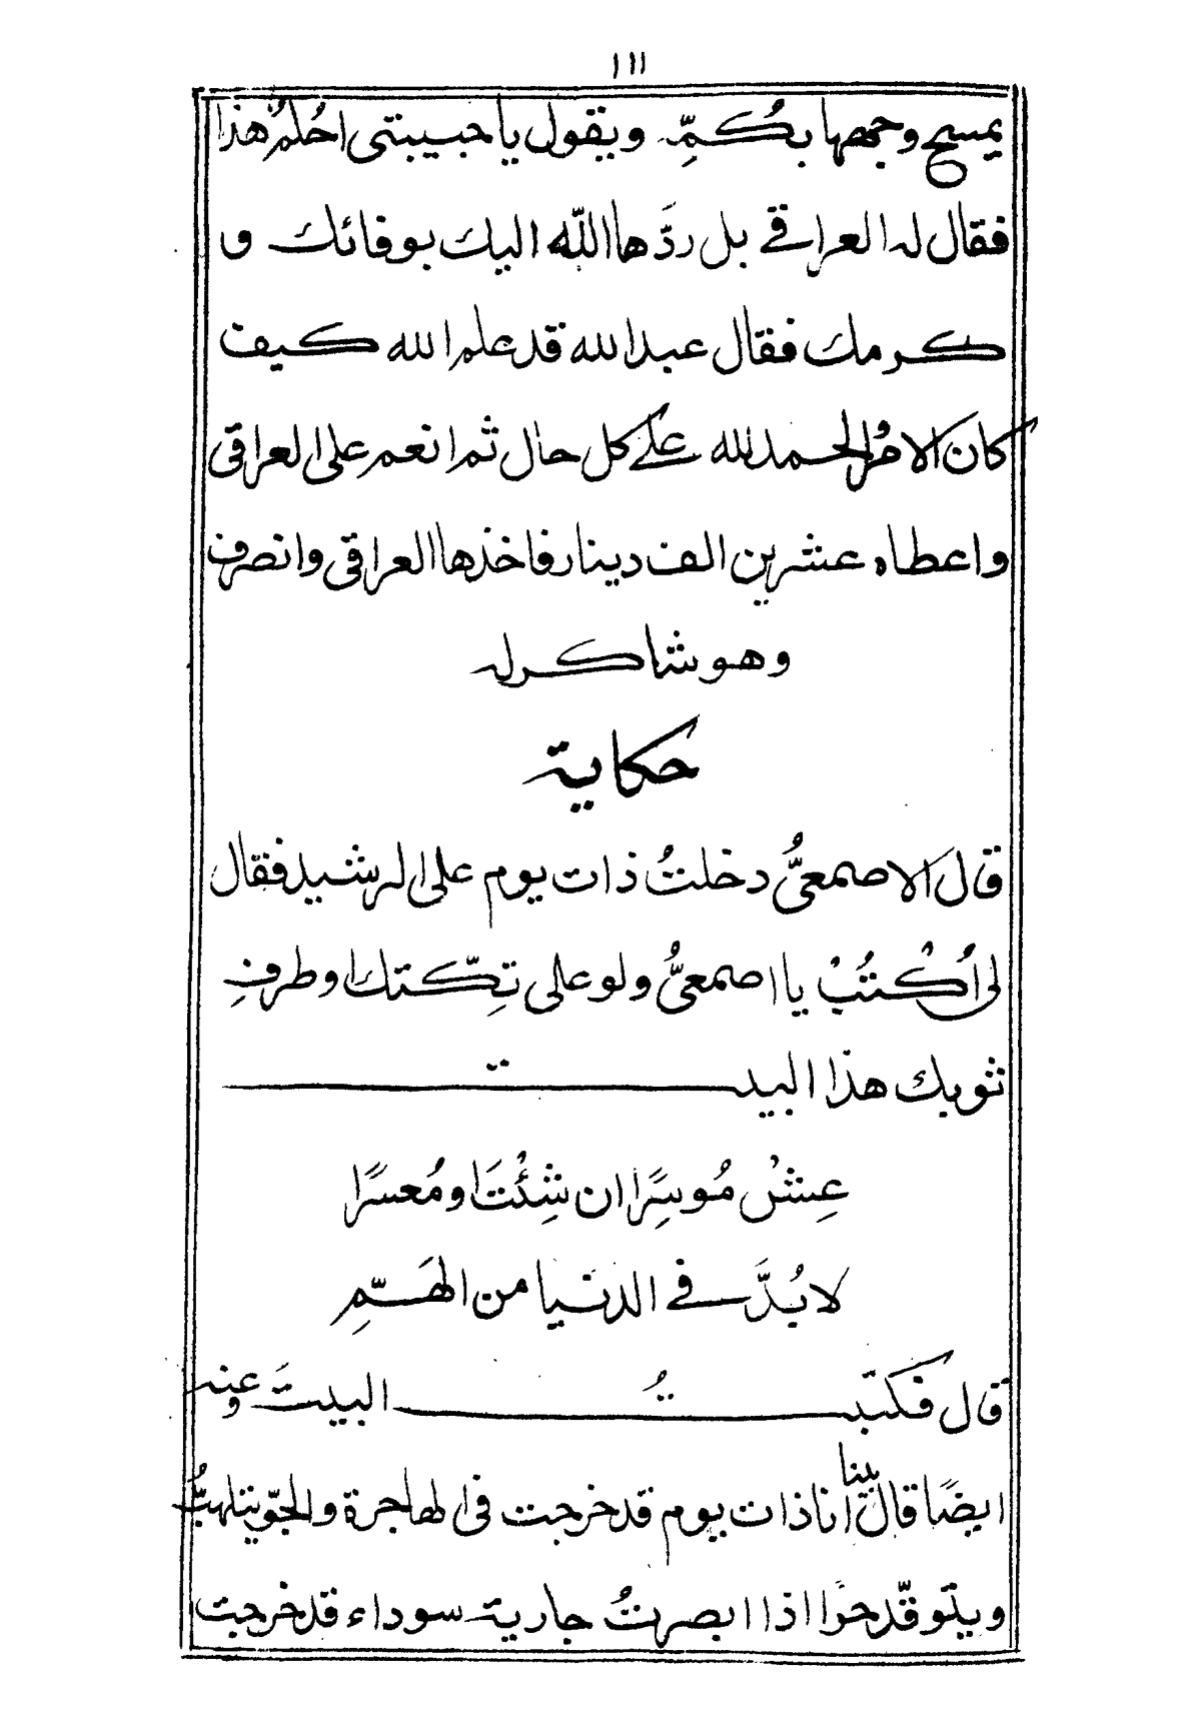 ١١١
يمسح وجهها بكُمِّه ويقول يا حبيبتى احُلمٌ هذا
فقال له العراقے بل ردَّها اللّٰه اليك بوفائك و
كرمك فقال عبدالله قد علم الله كيف
كان الامرُ الحمد لله علے كل حال ثم انعم على العراقى
واعطاه عشرين الف دينار فاخذها العراقى وانصرف
وهو شاكر له
حكاية
قال الاصمعىُّ دخلتُ ذات يوم على الرشيد فقال
لى اُكْتُبْ يا اصمعىُّ ولو على تِكّتك او طرفِ
ثوبك هذا البيت
عِشْ مُوسِرًا ان شِئْتَ او مُعسرًا
لا بُدَّ فے الدنيا من الهَمِّ
قال فكتبتُ البيتَ وعنه
ايضًا قال بينا انا ذات يوم قد خرجت فى الهاجرة والجوّ يتلهبُ
ويتوقّد حرًا اذا ابصرتُ جارية سوداء قد خرجت